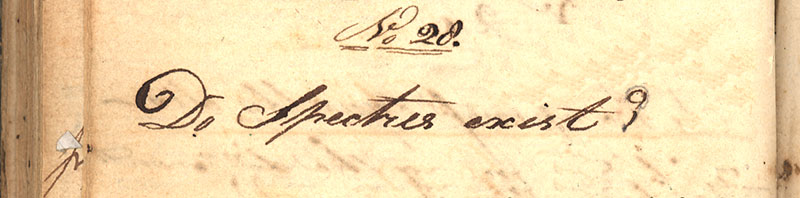 No 28.
Do Spectres exist?